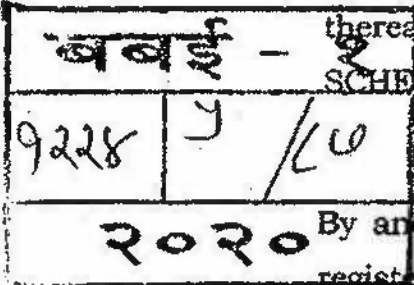 therea
बबई - २
SCHE
१२२४ ५ /८७
२०२० By an
registe